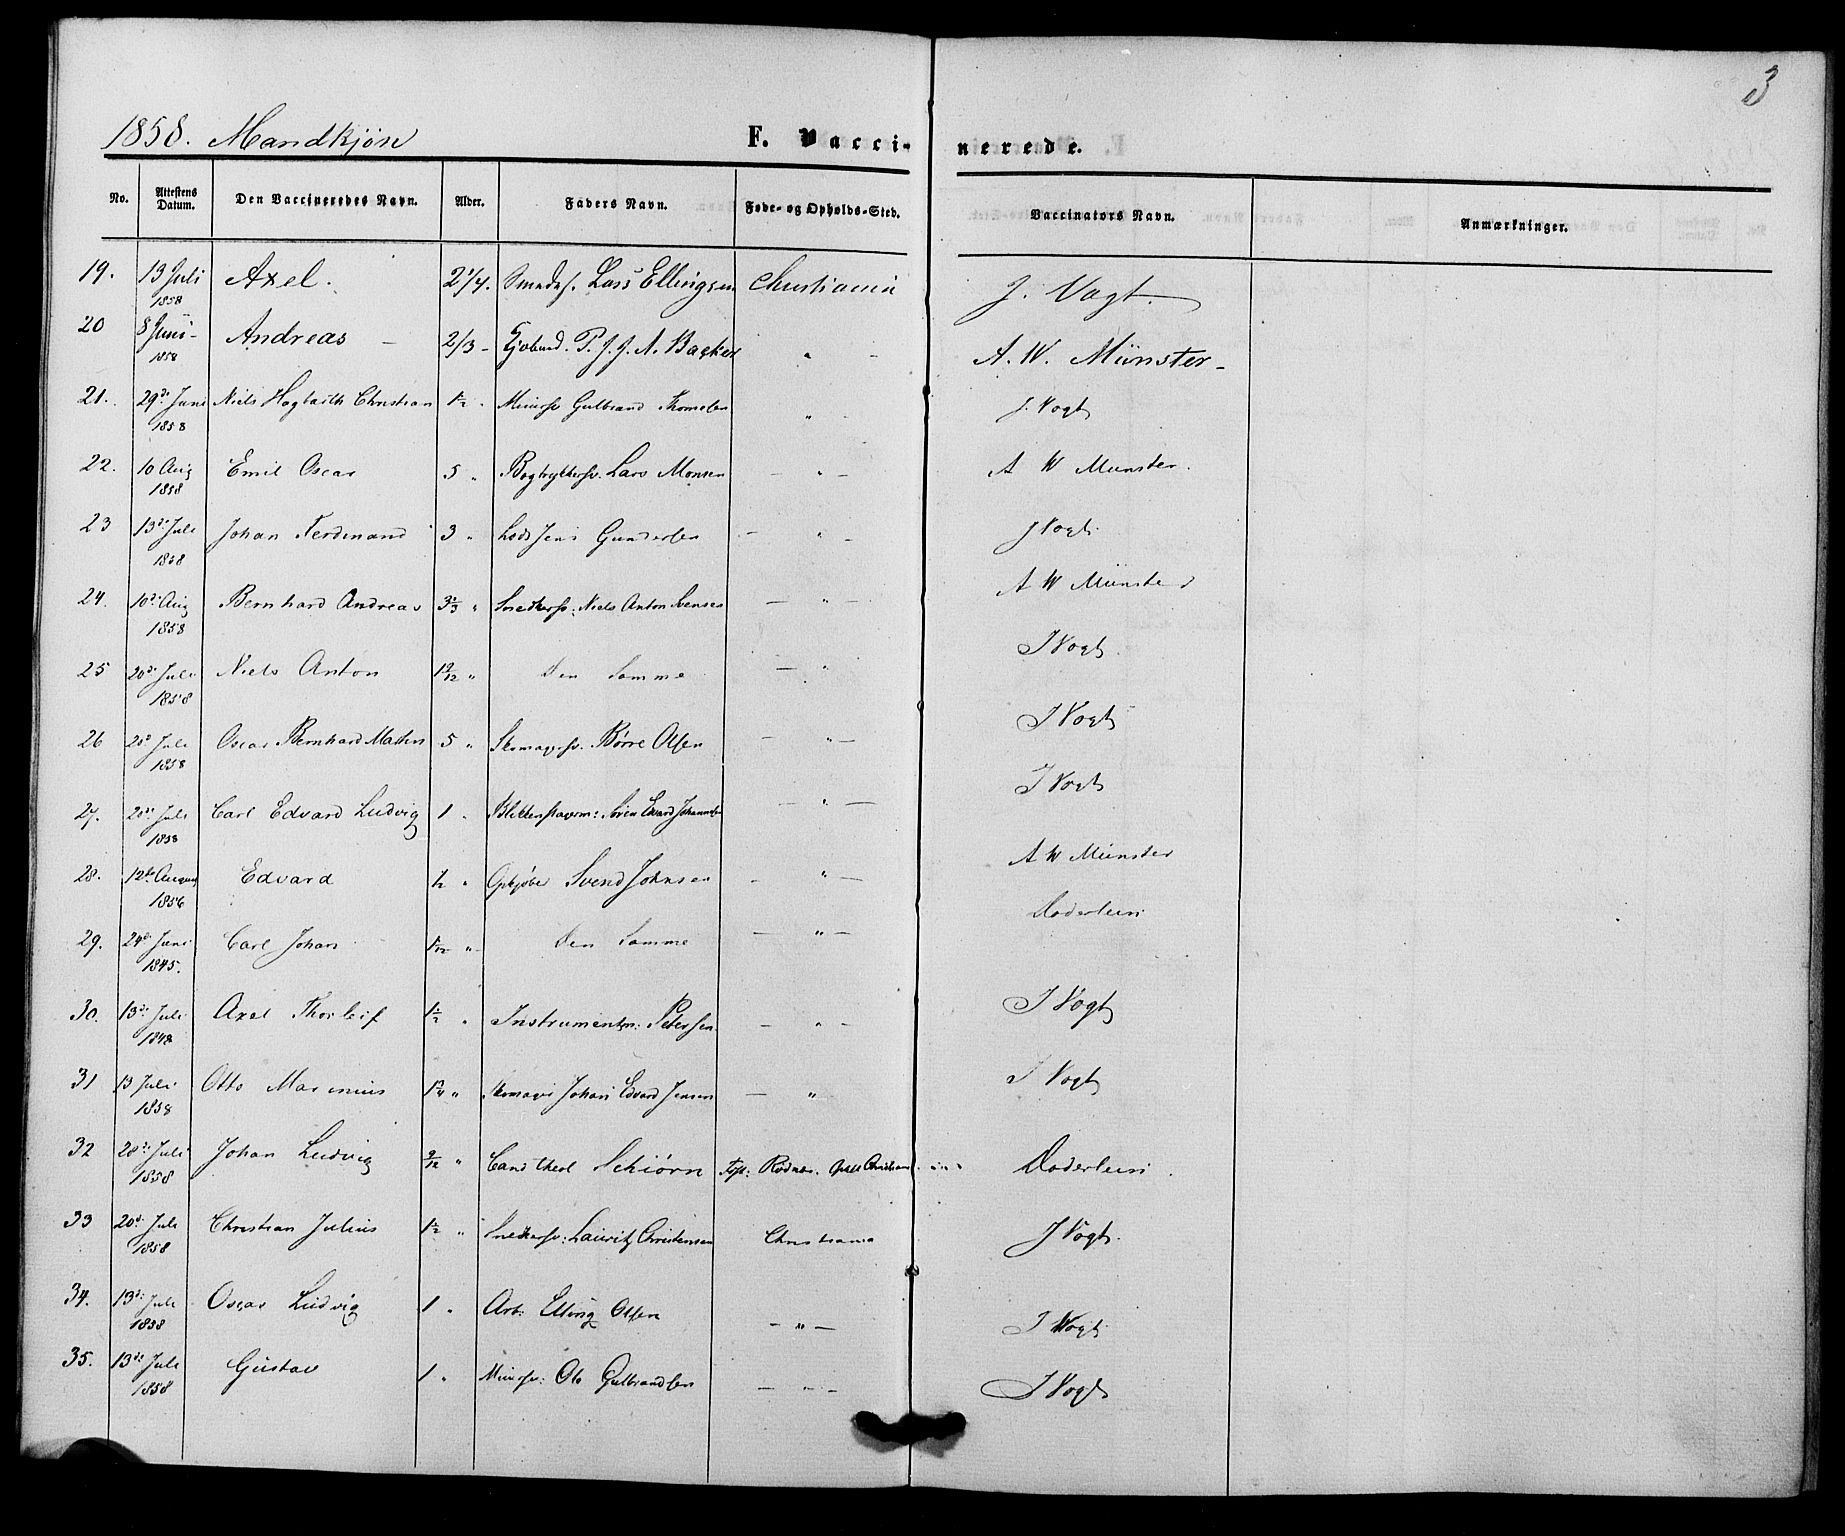 3
1858. Mandkjøn F. Vaccinerede.
No. Attestens Datum. Den Vaccineredes Navn. Alder. Faders Navn. Føde- og Opholds-Sted. Vaccinators Navn. Anmærkninger.
19. 13 Juli 1858 Axel. 2 1/4. Smedsv. Lars Ellingsen Christiania J. Vogt.
20 8 Juni 1858 Andreas – 2/3 – P. J. J. A. Backer " – A. W. Münster –
21. 29de Juni 1858 Niels Christian 1/2 . Muursv Gulbrand Thomesen " – J. Vogt
22. 10 Aug 1858 Emil Oscar 5 " Bogtrykkersv. Lars Monsen – " – A W Munster.
23 13de Juli 1858 Johan Ferdinand 3 " Lods Jens Gundersen – " – J Vogt
24. 10de Aug 1858 Bernhard Andreas 3 1/3 " Snedkersv: Niels Anton Svensen – " – A W Münster
25 20de Juli 1858 Niels Anton 1 9/12 " Den Samme – " J Vogt.
26 20de Juli 1858 Oscar Bernhard Mathin 5 " Skomagersv. Børre Olsen – " – J Vogt
27. 20de Juli 1858 Carl Edvard Ludvig 1 " Søren Edvard Johannesen – " – J Vogt
28. 12te August 1856 Edvard 1/2 " Opkjøber Svend Johnsen – " – A W Münster
29. 24de Juni 1845. Carl Johan " – Den Samme – " – Doderlein
30. 13de Juli 1848 Axel Thorleif 1 1/2 " Instrumentm: Petersen – " – J Vogt
31 13 Juli 1858 Otto Marinius 1 3/4 " Skomager Johan Edvard Jensen – " J Vogt
32 28de Juli 1858 Johan Ludvig 9/12 " Cand theol Schiørn Fød: Rødnes. Doderlein.
33 20de Juli 1858 Christian Julius 1 1/2 " Snedkersv: Lauritz Christensen Christiania J Vogt.
34. 13de Juli 1858 Oscar Ludvig 1 " Arb: Elling Olsen – " – J Vogt
35. 13de Juli 1858 Gustav 1 " Muursv: Ole Gulbrandsen – " – J Vogt